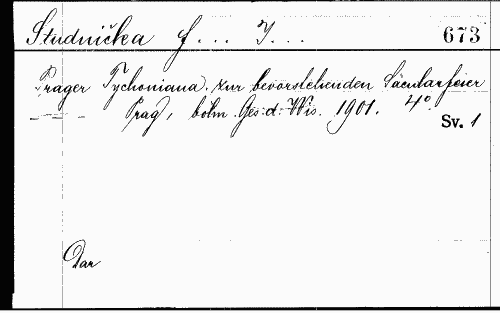 Studnička F... J... 673
Prager Tychoniana. zur bevorstehenden Säcularfeier
Prag, böhm. Ges. d. Wis. 1901. 4°
Sv. 1
Dar